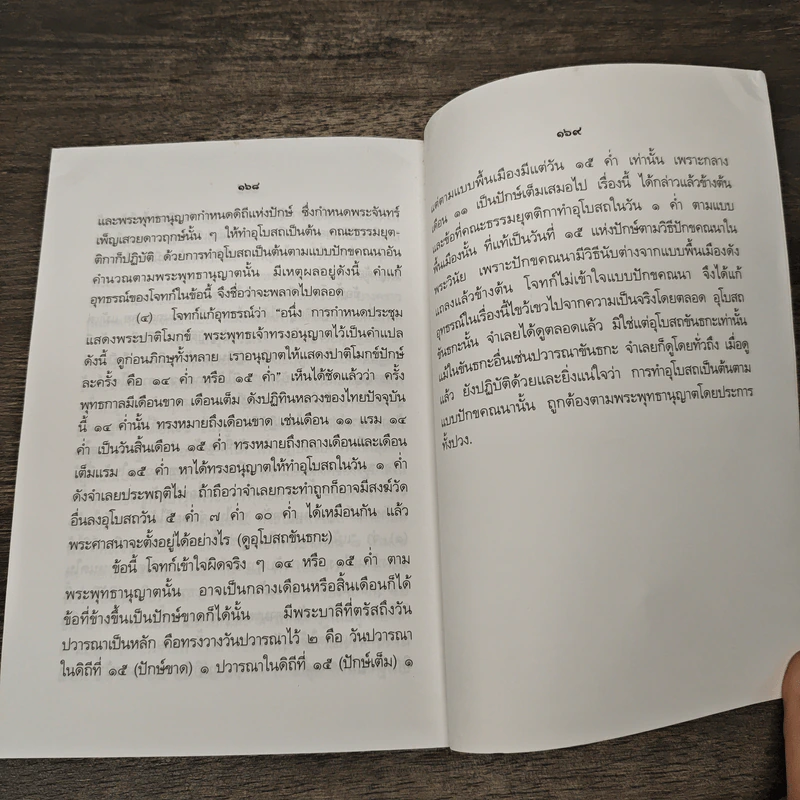 ๑๖๘
และพระพุทธานุญาตกำหนดดิถีแห่งปักษ์ ซึ่งกำหนดพระจันทร์
เพ็ญเสวยดาวฤกษ์นั้น ๆ ให้ทำอุโบสถเป็นต้น คณะธรรมยุต-
ติกาก็ปฏิบัติ ด้วยการทำอุโบสถเป็นต้นตามแบบปักขคณนาอัน
คำนวณตามพระพุทธานุญาตนั้น มีเหตุผลอยู่ดังนี้ คำแก้
อุทธรณ์ของโจทก์ในข้อนี้ จึงชื่อว่าจะพลาดไปตลอด
(๔) โจทก์แก้อุทธรณ์ว่า "อนึ่ง การกำหนดประชุม
แสดงพระปาติโมกข์ พระพุทธเจ้าทรงอนุญาตไว้เป็นคำแปล
ดังนี้ ดูก่อนภิกษุทั้งหลาย เราอนุญาตให้แสดงปาติโมกข์ปักษ์
ละครั้ง คือ ๑๔ ค่ำ หรือ ๑๕ ค่ำ" เห็นได้ชัดแล้วว่า ครั้ง
พุทธกาลมีเดือนขาด เดือนเต็ม ดังปฏิทินหลวงของไทยปัจจุบัน
นี้ ๑๔ ค่ำนั้น ทรงหมายถึงเดือนขาด เช่นเดือน ๑๑ แรม ๑๔
ค่ำ เป็นวันสิ้นเดือน ๑๕ ค่ำ ทรงหมายถึงกลางเดือนและเดือน
เต็มแรม ๑๕ ค่ำ หาได้ทรงอนุญาตให้ทำอุโบสถในวัน ๑ ค่ำ
ดังจำเลยประพฤติไม่ ถ้าถือว่าจำเลยกระทำถูกก็อาจมีสงฆ์วัด
อื่นลงอุโบสถวัน ๕ ค่ำ ๗ ค่ำ ๑๐ ค่ำ ได้เหมือนกัน แล้ว
พระศาสนาจะตั้งอยู่ได้อย่างไร (ดูอุโบสถขันธกะ)
ข้อนี้ โจทก์เข้าใจผิดจริง ๆ ๑๔ หรือ ๑๕ ค่ำ ตาม
พระพุทธานุญาตนั้น อาจเป็นกลางเดือนหรือสิ้นเดือนก็ได้
ข้อที่ข้างขึ้นเป็นปักษ์ขาดก็ได้นั้น มีพระบาลีที่ตรัสถึงวัน
ปวารณาเป็นหลัก คือทรงวางวันปวารณาไว้ ๒ คือ วันปวารณา
ในดิถีที่ ๑๔ (ปักษ์ขาด) ๑ ปวารณาในดิถีที่ ๑๕ (ปักษ์เต็ม) ๑
๑๖๙
แต่ตามแบบพื้นเมืองมีแต่วัน ๑๕ ค่ำ เท่านั้น เพราะกลาง
เดือน ๑๑ เป็นปักษ์เต็มเสมอไป เรื่องนี้ ได้กล่าวแล้วข้างต้น
และข้อที่คณะธรรมยุตติกาทำอุโบสถในวัน ๑ ค่ำ ตามแบบ
พื้นเมืองนั้น ที่แท้เป็นวันที่ ๑๕ แห่งปักษ์ตามวิธีปักขคณนาใน
พระวินัย เพราะปักขคณนามีวิธีนับต่างจากแบบพื้นเมืองดัง
แถลงแล้วข้างต้น โจทก์ไม่เข้าใจแบบปักขคณนา จึงได้แก้
อุทธรณ์ในเรื่องนี้ไขว้เขวไปจากความเป็นจริงโดยตลอด อุโบสถ
ขันธกะนั้น จำเลยได้ดูตลอดแล้ว มิใช่แต่อุโบสถขันธกะเท่านั้น
แม้ในขันธกะอื่นเช่นปวารณาขันธกะ จำเลยก็ดูโดยทั่วถึง เมื่อดู
แล้ว ยังปฏิบัติด้วยและยิ่งแน่ใจว่า การทำอุโบสถเป็นต้นตาม
แบบปักขคณนานั้น ถูกต้องตามพระพุทธานุญาตโดยประการ
ทั้งปวง.